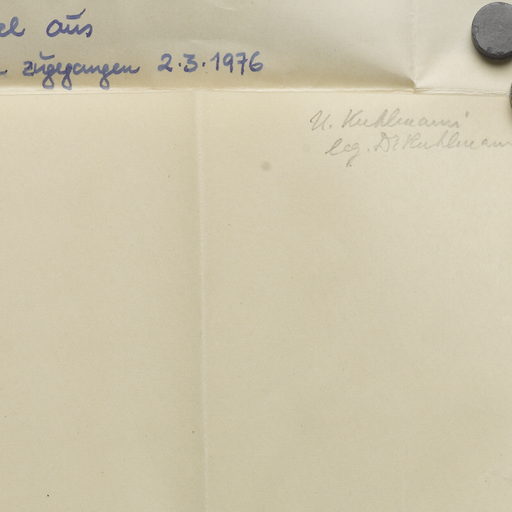 aus
zugegangen 2.3.1976
U. Kuhlmanni
leg. Dr Kuhlmann